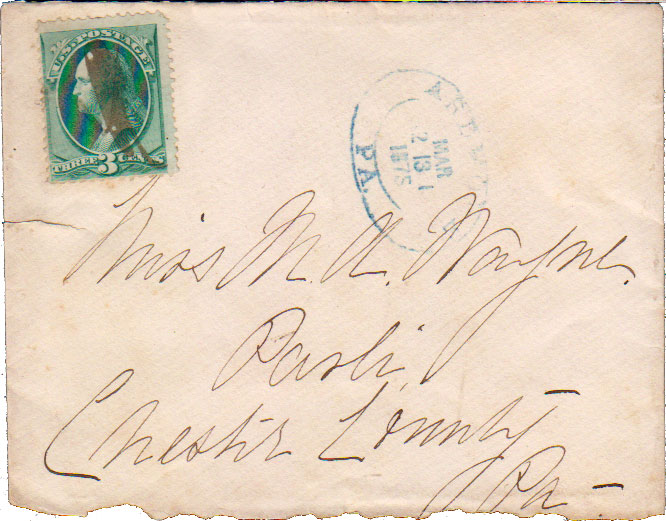 U.S. POSTAGE
THREE 3 CENTS
MAR
13
1875
PA.
Miss M. A. Wayne.
Paoli,
Chester County
Pa